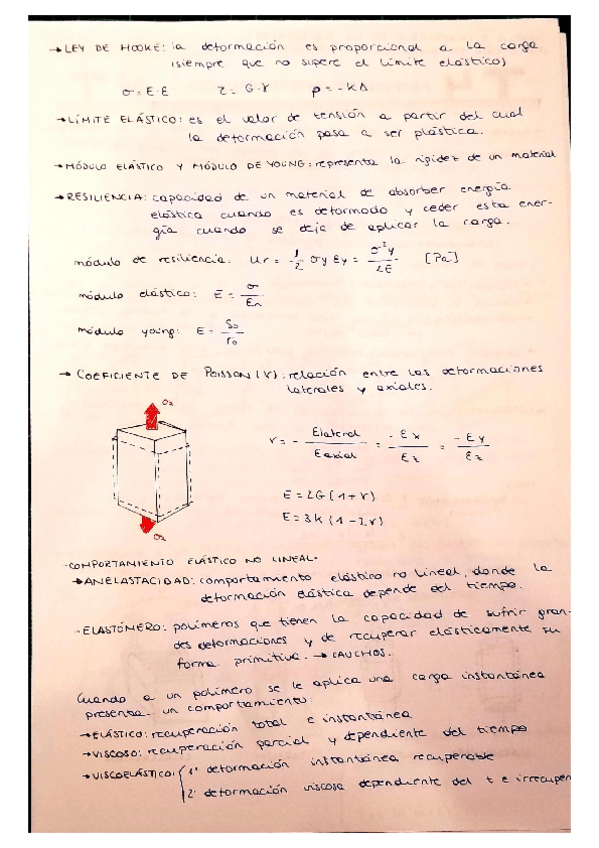 →LEY DE HOOKE: la deformación es proporcional a la carga
(siempre que no supere el límite elástico)
σ=E·ε τ=G·γ p=-kΔ
→LÍMITE ELÁSTICO: es el valor de tensión a partir del cual
la deformación pasa a ser plástica.
→MÓDULO ELÁSTICO Y MÓDULO DE YOUNG: representa la rigidez de un material
→RESILIENCIA: capacidad de un material de absorber energía
elástica cuando es deformado y ceder esta ener-
gía cuando se deja de aplicar la carga.
módulo de resiliencia: Ur = 1/2 σy εy = σ²y/2E [Pa]
módulo elástico: E = σ/εn
módulo young: E = S₀/r₀
→ COEFICIENTE DE POISSON (ν): relación entre las deformaciones
laterales y axiales.
σz
ν = - εlateral/εaxial = -εx/εz = -εy/εz
E = 2G(1+ν)
E = 3k(1-2ν)
σz
-COMPORTAMIENTO ELÁSTICO NO LINEAL-
→ANELASTACIDAD: comportamiento elástico no lineal, donde la
deformación elástica depende del tiempo.
-ELASTÓMERO: polímeros que tienen la capacidad de sufrir gran-
des deformaciones y de recuperar elásticamente su
forma primitiva. → CAUCHOS.
Cuando a un polímero se le aplica una carga instantánea
presenta un comportamiento:
→ELÁSTICO: recuperación total e instantánea
→VISCOSO: recuperación parcial y dependiente del tiempo
→VISCOELÁSTICO: { 1º deformación instantánea recuperable
2º deformación viscosa dependiente del t e irrecuper